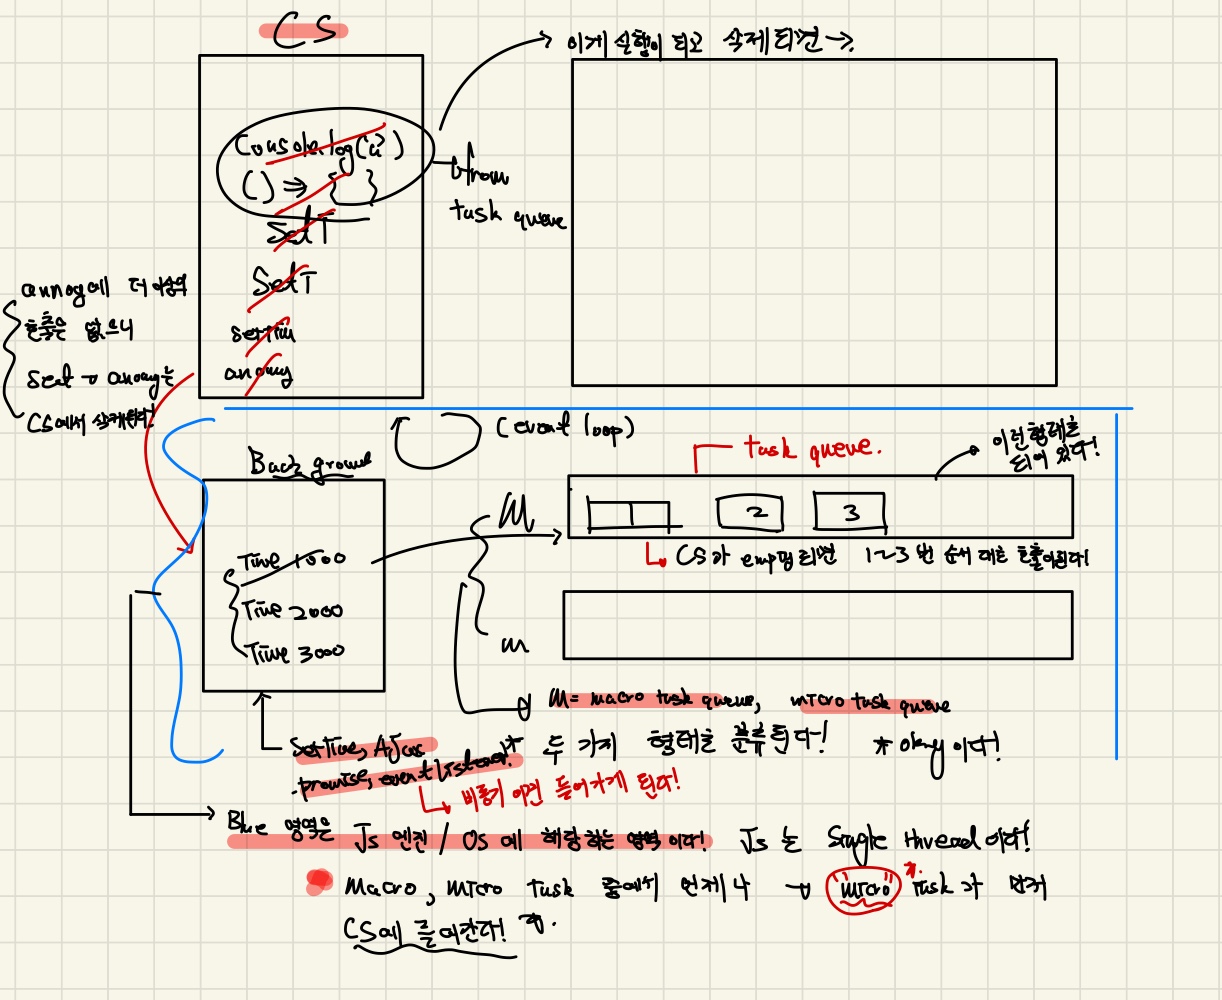 CS
이게 실행이 되고 삭제되면 →
Console.log('a')
() => { }
from
task queue
SetT
SetT
anony에 더 이상의
호출은 없으니
Set → anony는
CS에서 삭제된다!
anony
(event loop)
Back ground
task queue.
이런 형태로
되어 있다!
M
2
3
CS가 empty 되면 1~3번 순서 대로 호출이된다!
Time 1000
Time 2000
Time 3000
m
M = macro task queue, micro task queue
* 두 가지 형태로 분류된다! * okay이다!
SetTime, Ajax
promise, event listener.
비동기 이런 들어가게 된다!
Blue 영역은 Js 엔진 / OS 에 해당하는 영역이다! Js 는 Single thread이다!
Macro, micro task 중에서 언제나 → "micro" task가 먼저
CS에 들어간다!